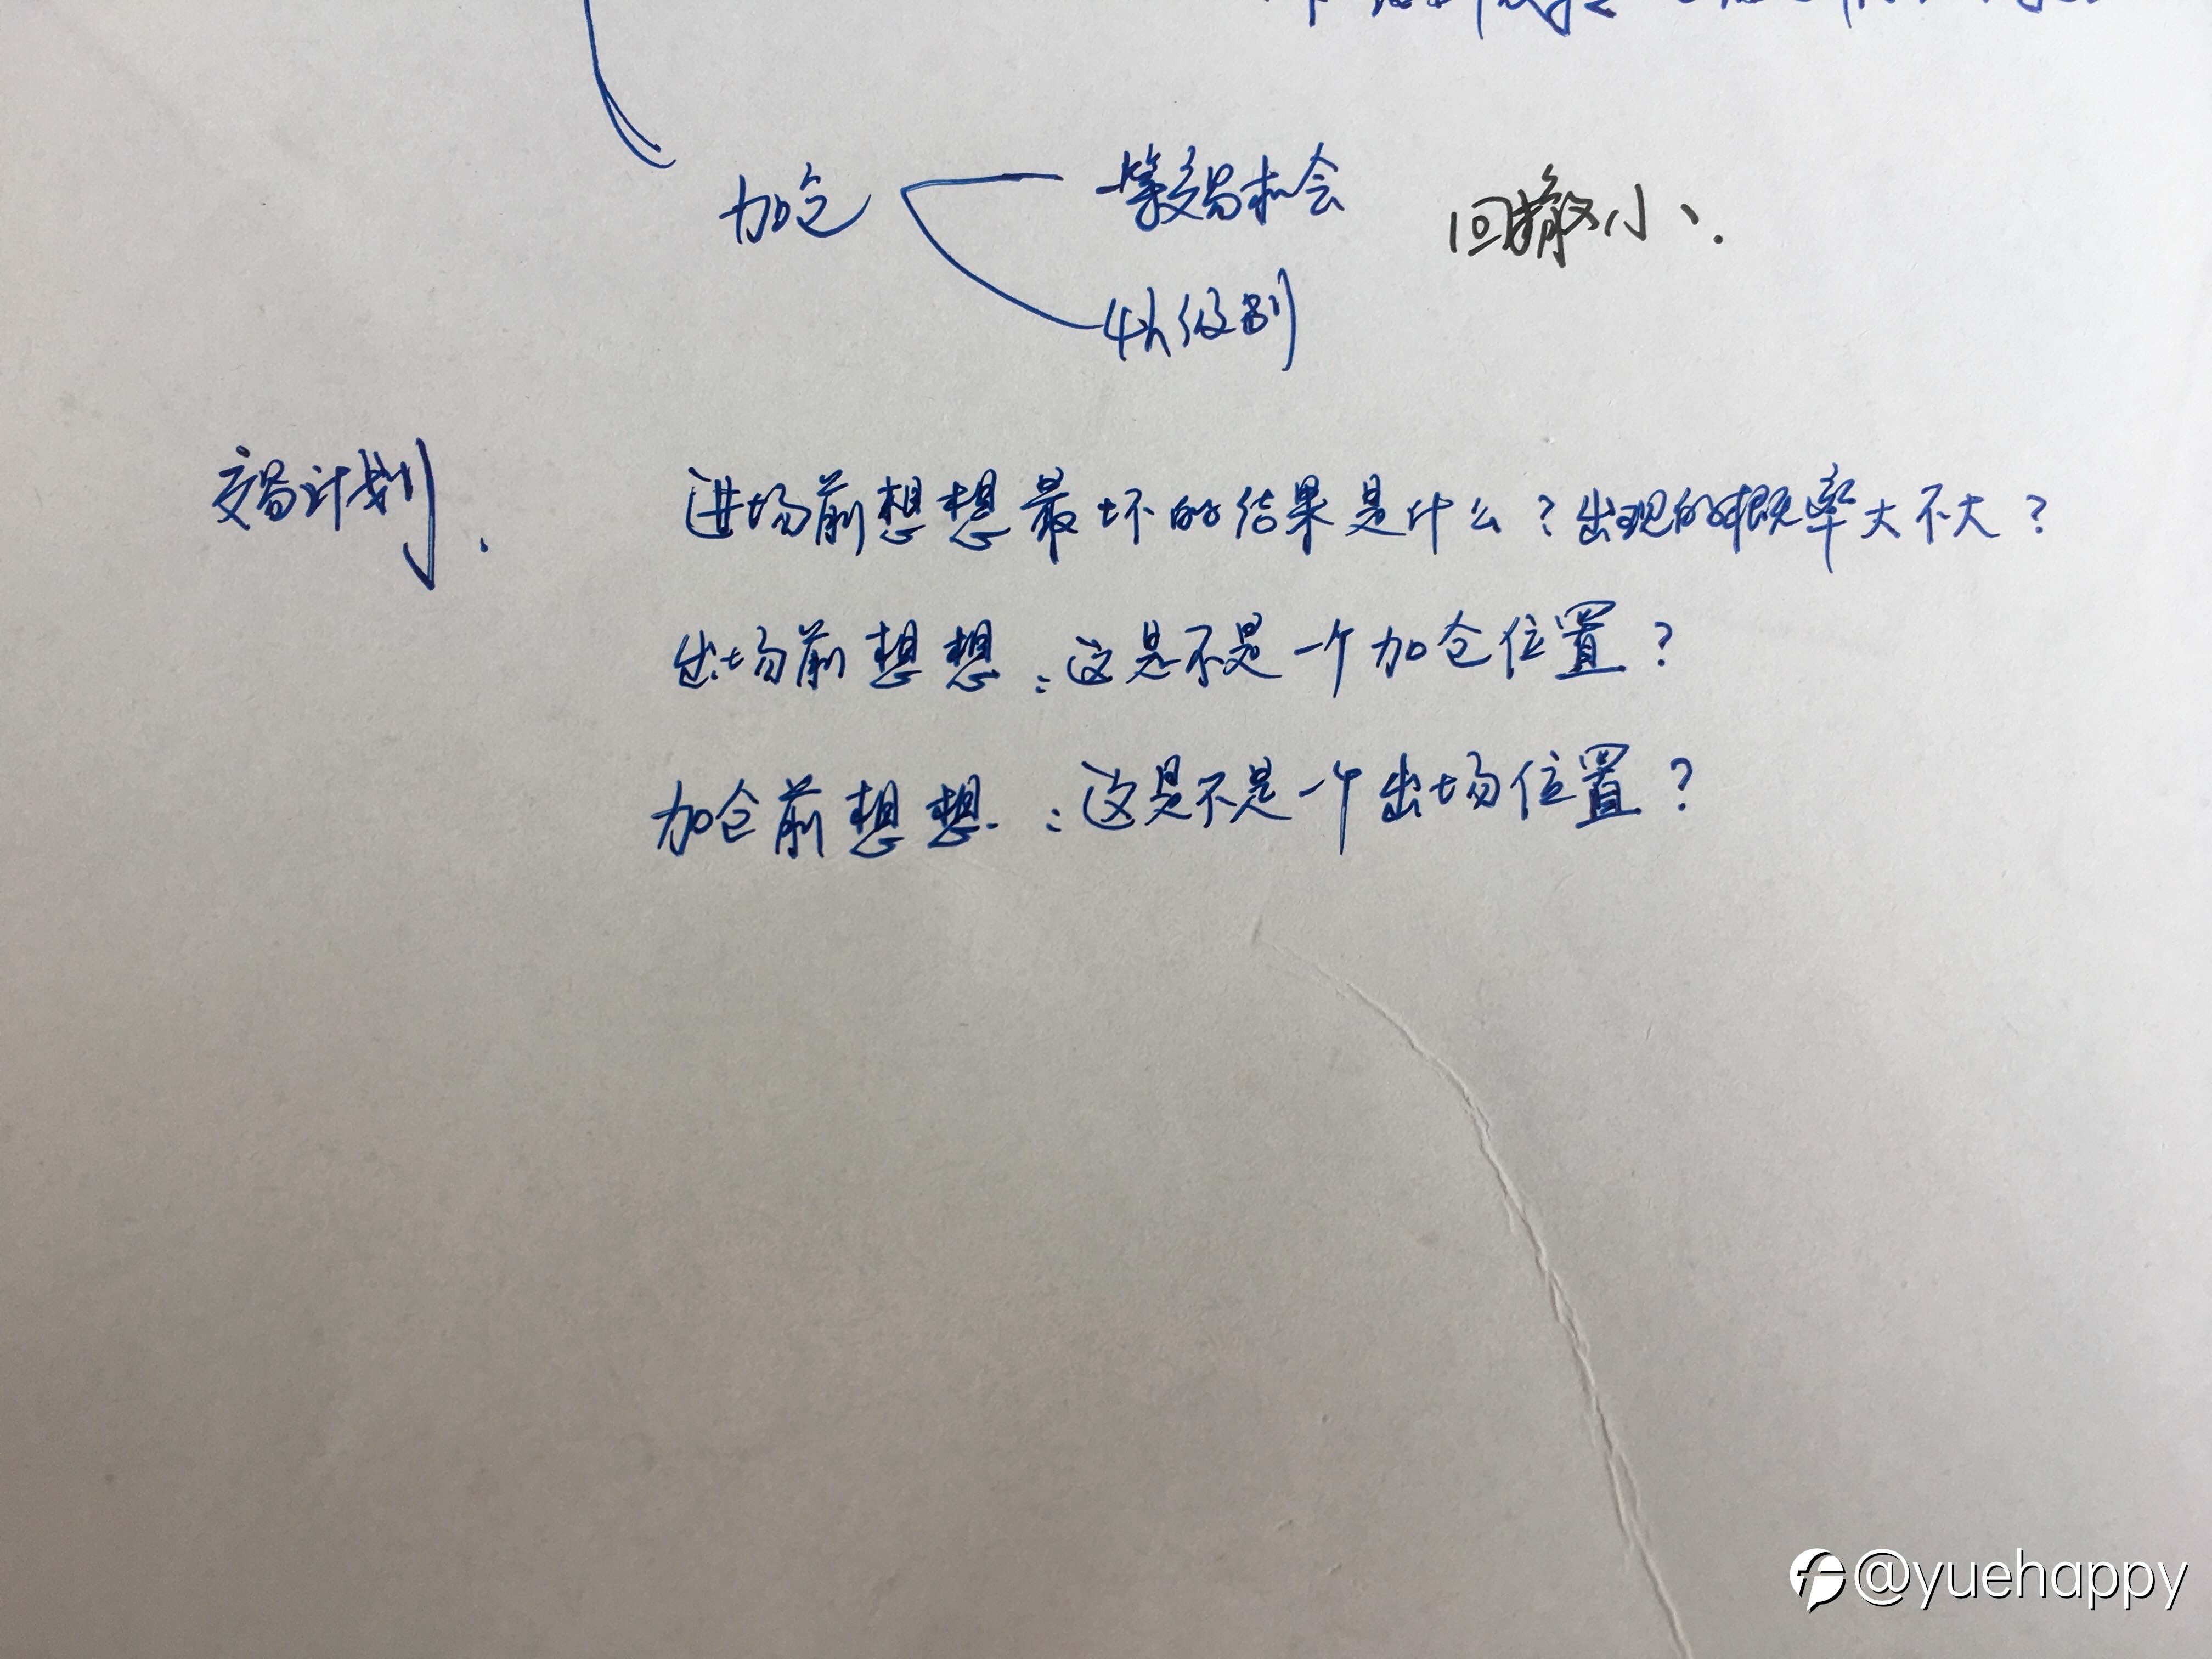 加仓
一等交易机会
回撤小、.
4h级别
交易计划.
进场前想想最坏的结果是什么?出现的概率大不大?
出场前想想:这是不是一个加仓位置?
加仓前想想.:这是不是一个出场位置?
@yuehappy